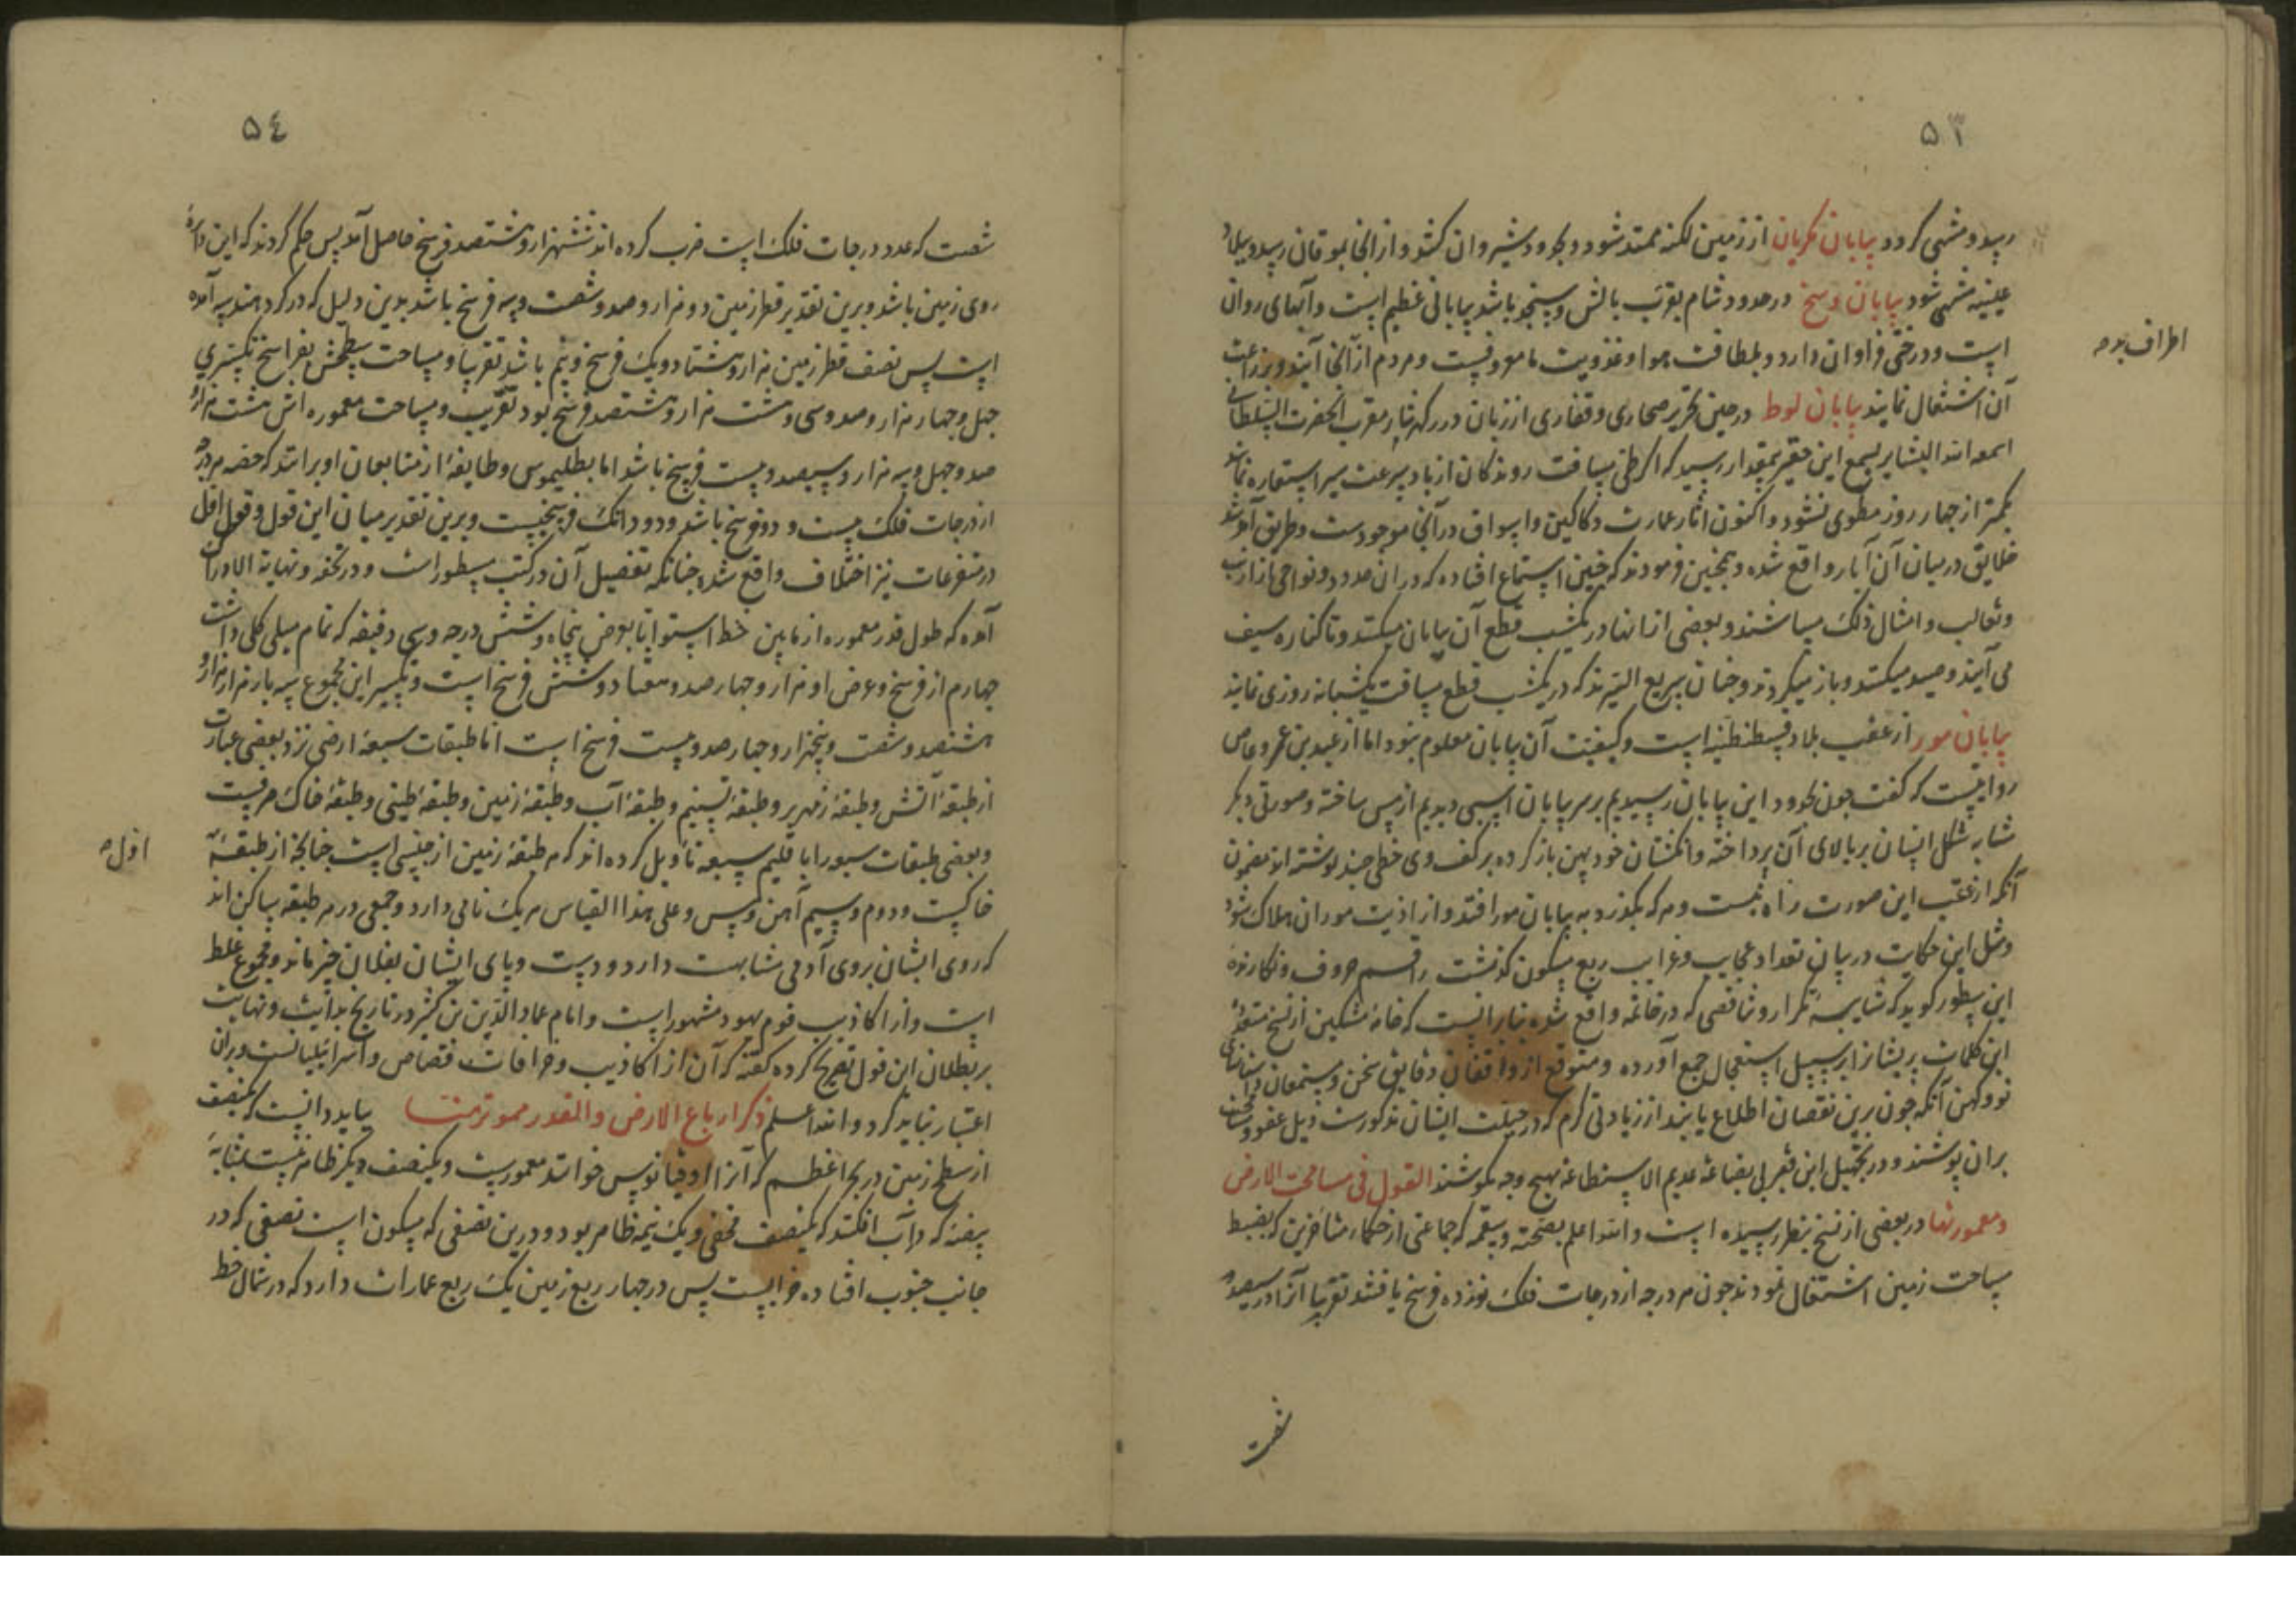 ۵۳
رسد و منتهی گردد بیابان مکریان از زمین لکنه ممتد شود و بحدود شیروان کشد و از انجا بموقان رسد و ببلاد
منتهی شود بیابان وسخ در حدود شام بقرب بالش و سنجو باشد بیابانی عظیم است و آبهای روان
است و درختی فراوان دارد و بلطافت هوا و عذوبت ما معروفست و مردم از آنجا آیند و بزراعت
آن اشتغال نمایند بیابان لوط در حین تحریر صحاری و قفاری از زبان مقرب الحضرت السلطانی
بسمع این فقیر رسید که اگر طی مسافت روندگان از باد سرعت سیر استعاره نمایند
بکمتر از چهار روز مطوی نشود و اکنون اثار عمارت و دکاکین و اسواق در آنجا موجودست و طریق آمد شد
خلایق در میان آن آبار واقع شده و همچنین فرمودند که چنین استماع افتاده که در ان حدود و نواحی از ارانب
و ثعالب و امثال ذلک میباشند و بعضی از انها در یکشب قطع آن بیابان میکنند و تا کناره سیف
می آیند و صید میکنند و باز میگردند و چنان سریع السیرند که در یکشب قطع مسافت یکشبانه روزی نمایند
بیابان مور از عقب بلاد قسطنطنیه است و کیفیت آن بیابان معلوم نبود اما از عبید بن عمرو عاص
روایتست که گفت چون بحدود این بیابان رسیدیم بر سر بیابان اسبی دیدیم از مس ساخته و صورتی دیگر
مشابه شکل انسان بر بالای آن پرداخته و انگشتان خود پهن باز کرده بر کف وی خطی چند نوشته اند مضمون
آنکه از عقب این صورت راه نیست و هر که بگذرد به بیابان مور افتد و از اذیت موران هلاک شود
و مثل این حکایت در بیان تعداد عجایب و غرایب ربع مسکون گذشت راقم حروف و نگارنده
این سطور گوید که شایبه تکرار و تناقضی که در خاتمه واقع شده بنابر انست که خامه مشکین از نسخ متعدد
این کلمات پریشانرا بر سبیل استعجال جمع آورده و متوقع از واقفان دقایق سخن و مستمعان
نو و کهن آنکه چون برین نقصان اطلاع یابند از زیادتی کرم که در جبلت ایشان مذکورست ذیل عفو
بر ان پوشند و در تخجیل این فقیر بی بضاعه عدیم الاستطاعه بهیچ وجه نکوشند القول فی مساحة الارض
و معمورتها در بعضی از نسخ بنظر رسیده است و الله اعلم بصحته و سقمه که جماعتی از حکماء متاخرین که بضبط
مساحت زمین اشتغال نمودند چون هر درجه از درجات فلک نوزده فرسخ یافتند تقریبا آنرا در سیصد و
شصت
اطراف بدم
۵٤
شصت که عدد درجات فلک است ضرب کرده اند ششهزار و هشتصد فرسخ حاصل آمد پس حکم کردند که این دایرهٔ
روی زمین باشد و برین تقدیر قطر زمین دو هزار و صد و شصت و سه فرسخ باشد بدین دلیل که در کره هندسه آمده
است پس نصف قطر زمین هزار و هشتاد و یک فرسخ و نیم باشد تقریبا و مساحت سطحش بفراسخ تکسیری
چهل و چهار هزار و صد و سی و هشت هزار و هشتصد فرسخ بود بتقریب و مساحت معموره اش هشت هزار
صد و چهل و سه هزار و سیصد و بیست فرسخ باشد اما بطلیموس و طایفهٔ از متابعان او برانند که حصه هر درجه
از درجات فلک بیست و دو فرسخ باشد و دو دانگ فرسخیست و برین تقدیر میان این قول و قول اول
در متفرعات نیز اختلاف واقع شد چنانکه تفصیل آن در کتب مسطور است و در تحفه و نهایة الادراک
آمده که طول قدر معموره از مابین خط استوا تا بعرض پنجاه و شش درجه و سی دقیقه که تمام میلی کلی داشت
چهارم از فرسخ و عرض او هزار و چهار صد و هفتاد و شش فرسخ است و تکسیر این مجموع سه بار هزار هزار و
هشتصد و شصت و پنجهزار و چهار صد و بیست فرسخ است اما طبقات سبعهٔ ارضی نزد بعضی عبارت
از طبقهٔ آتش و طبقهٔ زمهریر و طبقهٔ نسیم و طبقهٔ آب و طبقهٔ زمین و طبقهٔ طینی و طبقهٔ خاک صرفست
و بعضی طبقات سبعه را باقلیم سبعه تاویل کرده اند که هر طبقهٔ زمین از جنسی است چنانچه از طبقهٔ
خاکیست و دوم و سیم آهن و مس و علی هذا القیاس هر یک نامی دارد و جمعی در هر طبقه ساکن اند
که روی ایشان بروی آدمی مشابهت دارد و دست و پای ایشان بفلان چیز ماند و مجموع غلط
است و از اکاذیب قوم یهود مشهور است و امام عماد الدین بن کثیر در تاریخ بدایت و نهایت
بر بطلان این قول تصریح کرده گفته که آن از اکاذیب و خرافات قصاص و اسرائیلیانست و بران
اعتبار نباید کرد و الله اعلم ذکر ارباع الارض و القدر معمور منها بباید دانست که نصف
از سطح زمین در بحر اعظم که آنرا اوقیانوس خوانند مغمورست و یکنصف دیگر ظاهر نیست بمثابهٔ
بیضهٔ که در آب افکند که یکنصف مخفی و یک نیمه ظاهر بود و درین نصفی که مسکون است نصفی که در
جانب جنوب افتاده خرابست پس در چهار ربع زمین یک ربع عمارات دارد که در شمال خط
اول